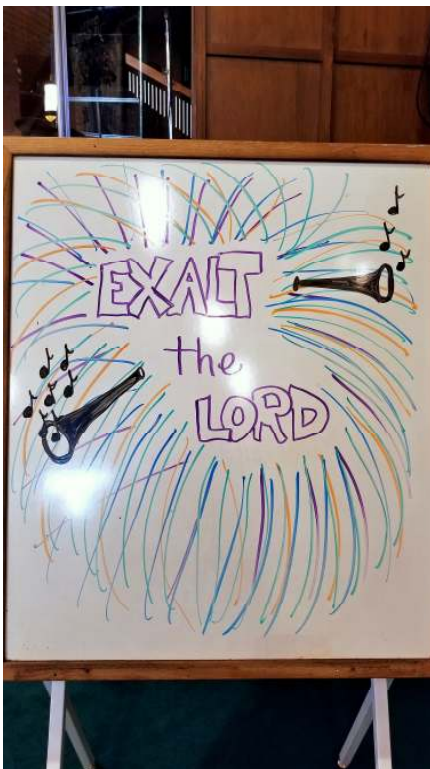 EXALT
the
LORD